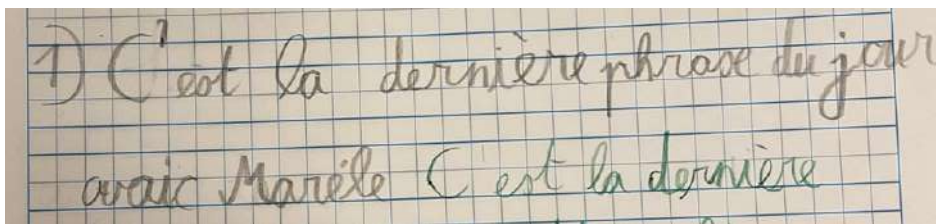 1) C'est la dernière phrase du jour
avaic Marièle C est la dernière